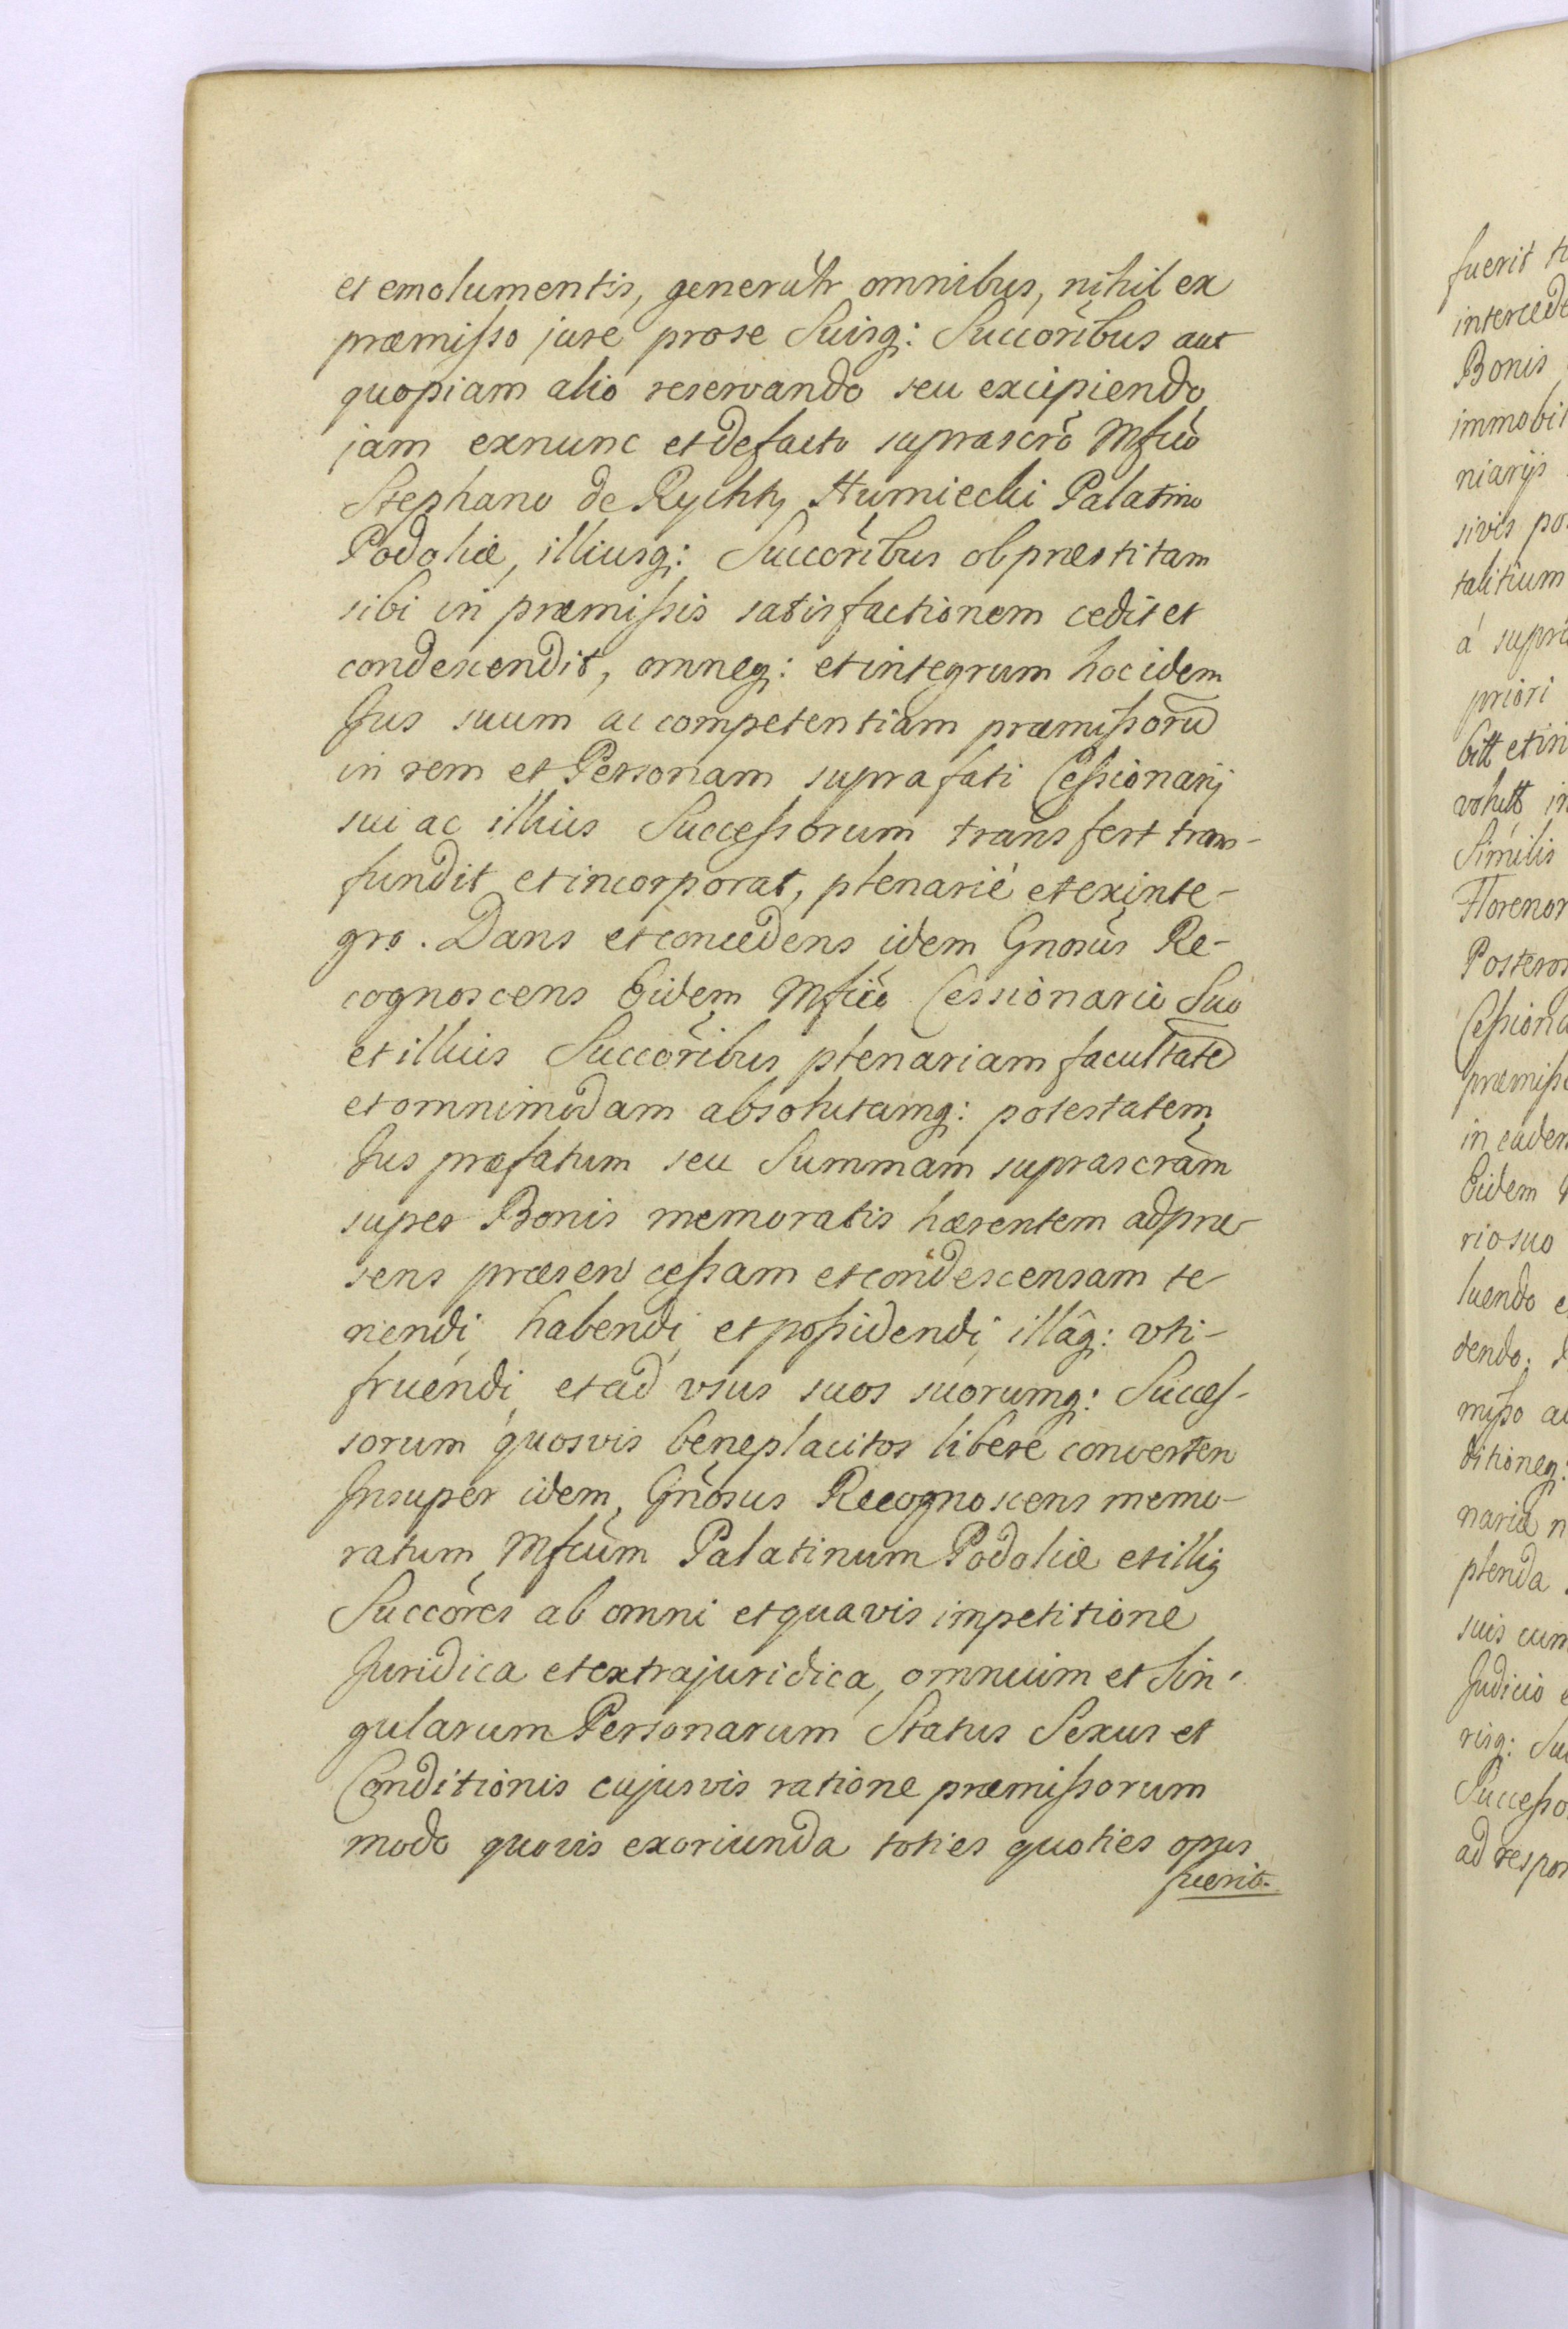 et emolumentis, generałtr omnibus, nihil ex
præmisso jure pro se Suisq: Succōribus aut
quopiam alio reservando seu excipiendo
jam exnunc et defacto suprascr̄o Mf̄co
Stephano de Rychty Humiecki Palatino
Podoliæ, illiusq: Succōribus ob præstitam
sibi in præmissis satisfactionem cedit et
condescendit, omneq: et integrum hoc idem
Jus suum ac competentiam præmissorū
in rem et Personam suprafati Cessionarij
sui ac illius Successorum transfert trans-
fundit et incorporat, plenarié et exinte-
gro. Dans et concedens idem Gnōsus Re-
cognoscens Eidem Mf̄co Cessionario Suo
et illius Succōribus plenariam facultatē
et omnimodam absolutamq: potestatem
Jus præfatum seu Summam suprascr̄am
super Bonis memoratis hærentem ad præ-
sens præsen cessam et condescensam te-
nendi, habendi, et possidendi, illâq: vti-
fruendi et ad vsus suos suorumq: Succes-
sorum quosvis beneplacitos liberé converten
Insuper idem Gnōsus Recognoscens memo-
ratum Mf̄cum Palatinum Podoliæ et illiꝰ
Succōres ab omni et quavis impetitione
Juridica et extrajuridica, omnium et Sin-
gularum Personarum Status Sexus et
Conditionis cujusvis ratione præmissorum
modo quovis exoriunda toties quoties opus
fuerit.
fuerit
intercede
Bonis
immobi
niarijs
sivis po
talitium
á supra
priori
bitt et in
voluit in
Similis
Florenor
Posteros
Cessiona
præmiss
in eadem
Eidem
rio suo
luendo
dendo.
misso a
ditioneq:
naria n
plenda
suis cum
Judicio
risq: Su
Successo
ad respon